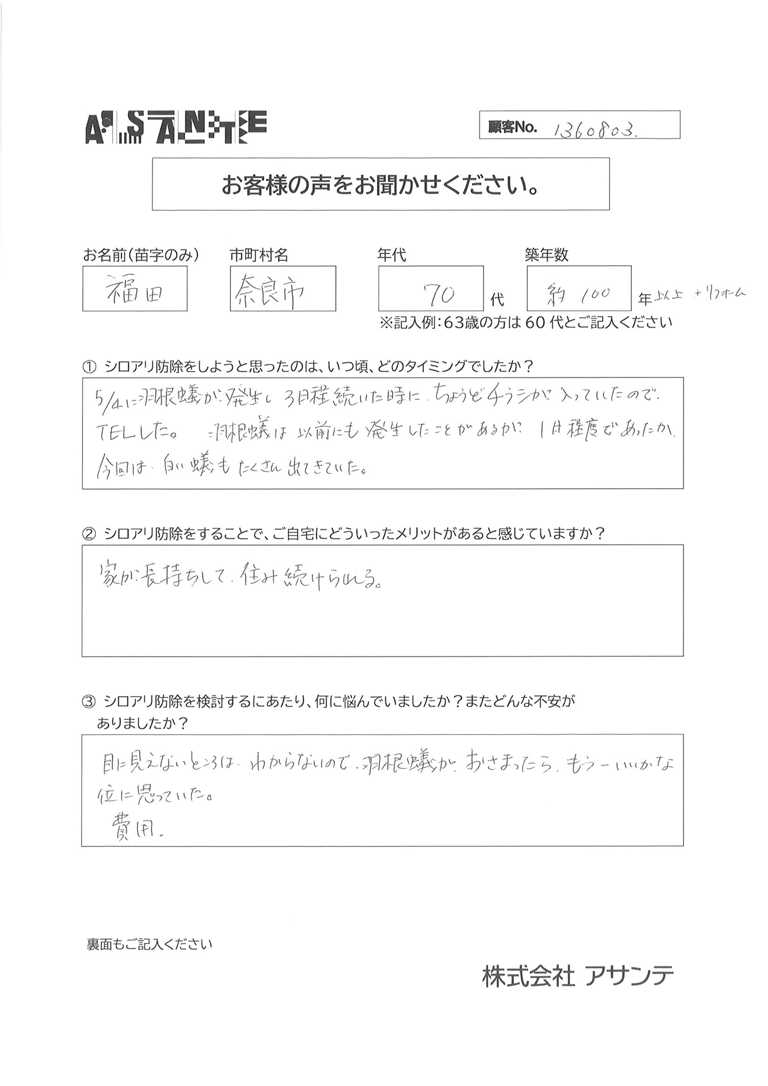 ASANTE
顧客No. 1360803.
お客様の声をお聞かせください。
お名前(苗字のみ) 市町村名 年代 築年数
福田 奈良市 70 代 約100 年 以上 + リフォーム
※記入例:63歳の方は60代とご記入ください
① シロアリ防除をしようと思ったのは、いつ頃、どのタイミングでしたか?
5/4に羽根蟻が発生し 3日程続いた時に、ちょうどチラシが入っていたので、
TELした。 羽根蟻は以前にも発生したことがあるが 1日程度であったが、
今回は、白い蟻もたくさん出てきていた。
② シロアリ防除をすることで、ご自宅にどういったメリットがあると感じていますか?
家が長持ちして、住み続けられる。
③ シロアリ防除を検討するにあたり、何に悩んでいましたか?またどんな不安が
ありましたか?
目に見えないところは、わからないので、羽根蟻が、おさまったら、もうーいいかな
位に思っていた。
費用.
裏面もご記入ください
株式会社 アサンテ